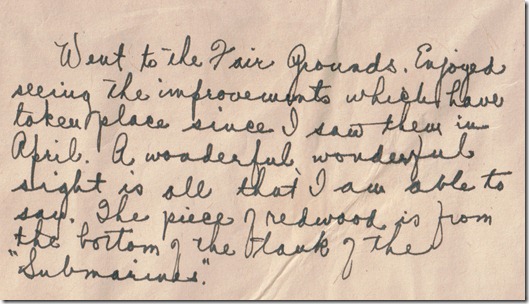 Went to the Fair Grounds. Enjoyed
seeing the improvements which have
taken place since I saw them in
April. A wonderful, wonderful
sight is all that I am able to
say. The piece of redwood is from
the bottom of the tank of the
"Submarines".